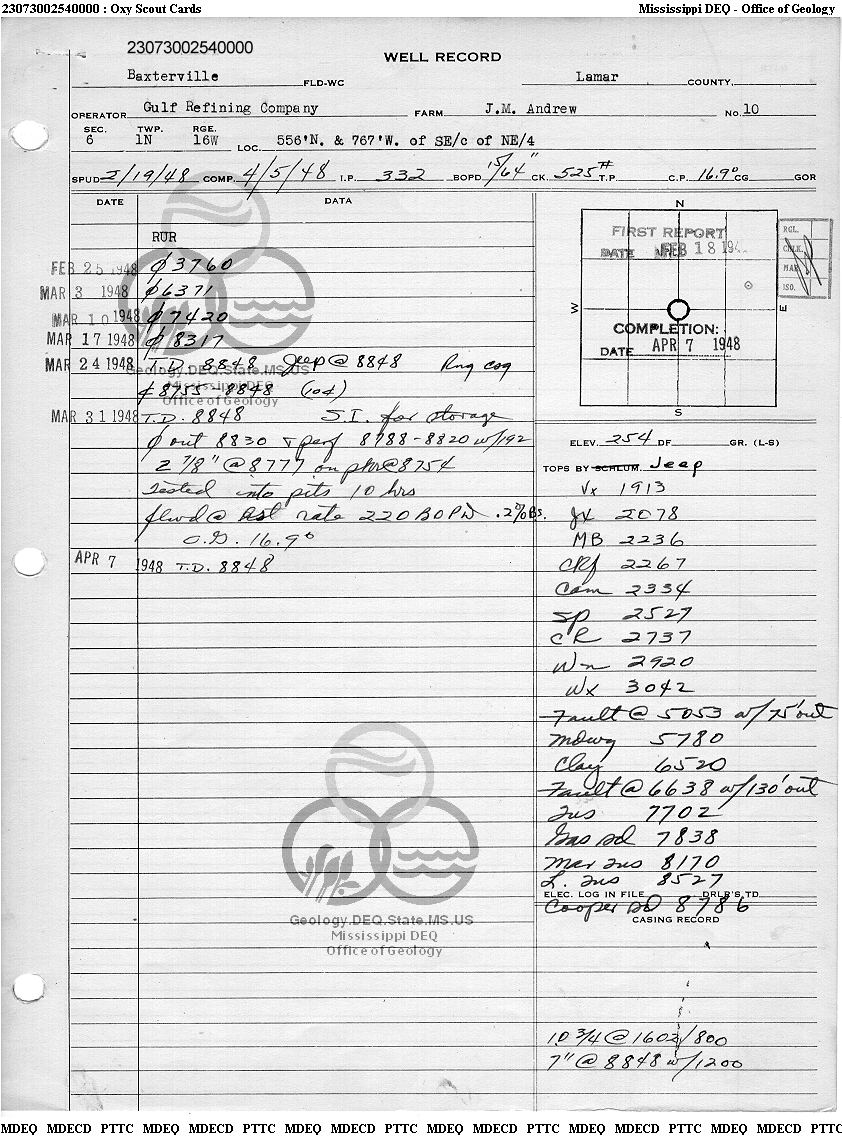 23073002540000 : Oxy Scout Cards Mississippi DEQ - Office of Geology
23073002540000
WELL RECORD
Baxterville FLD-WC Lamar COUNTY
OPERATOR Gulf Refining Company FARM J.M. Andrew No. 10
SEC. TWP. RGE.
6 1N 16W LOC. 556'N. & 767'W. of SE/c of NE/4
SPUD 2/19/48 COMP. 4/5/48 I.P. 332 BOPD 15/64" CK. 525# T.P. C.P. 16.9° CG GOR
DATE DATA
RUR
FEB 25 1948 ϕ 3760
MAR 3 1948 ϕ 6371
MAR 10 1948 ϕ 7420
MAR 17 1948 ϕ 8317
MAR 24 1948 T.D. 8848 Jeep @ 8848 Rng csg
¢ 8755-8848 (od)
MAR 31 1948 T.D. 8848 S.I. for storage
ϕ out 8830 & perf 8788-8820 w/192
2 7/8" @ 8777 on pkr @ 8754
Tested into pits 10 hrs
flwd @ est rate 220 BOPD .2% BS.
O.G. 16.9°
APR 7 1948 T.D. 8848
N
FIRST REPORT
DATE FEB 18 194
W E
COMPLETION:
DATE APR 7 1948
S
RGL.
CHK.
MAP
ISO.
ELEV. 254 DF GR. (L-S)
TOPS BY SCHLUM. Jeep
Vx 1913
Jx 2078
MB 2236
CRf 2267
Cam 2334
Sp 2527
CR 2737
Wn 2920
Wx 3042
Fault @ 5053 w/75' out
Mdwy 5780
Clay 6520
Fault @ 6638 w/130' out
Tus 7702
Gas Sd 7838
Mar Tus 8170
L. Tus 8527
ELEC. LOG IN FILE DRLR'S TD
Cooper Sd 8786
CASING RECORD
10 3/4 @ 1602/800
7" @ 8848 w/1200
Geology.DEQ.State.MS.US
Mississippi DEQ
Office of Geology
Geology.DEQ.State.MS.US
Mississippi DEQ
Office of Geology
MDEQ MDECD PTTC MDEQ MDECD PTTC MDEQ MDECD PTTC MDEQ MDECD PTTC MDEQ MDECD PTTC MDEQ MDECD PTTC